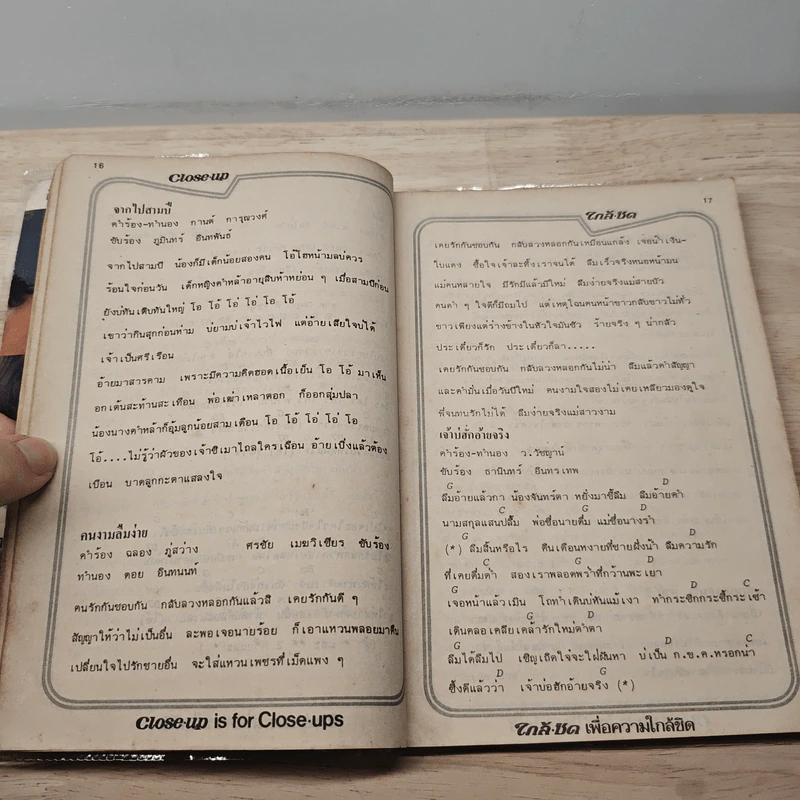 16
Close·up
จากไปสามปี
คำร้อง-ทำนอง กานต์ การุณวงศ์
ขับร้อง ภูมินทร์ อินทพันธ์
จากไปสามปี น้องก็มีเด็กน้อยสองคน โอ้โฮหน้ามลบ่ควร
ร้อนใจก่อนวัน เด็กหญิงคำหล้าอายุสิบห้าหย่อน ๆ เมื่อสามปีก่อน
ยังบ่ทันเติบทันใหญ่ โอ โอ้ โอ่ โอ่ โอ โอ้
เขาว่ากินสุกก่อนห่าม บ่ยามบ่เจ้าไวไฟ แต่อ้ายเสียใจบ่ได้
เจ้าเป็นศรีเรือน
อ้ายมาสารคาม เพราะมีความคึดฮอดเนื้อเย็น โอ โอ้ มาเห็น
อกเต้นสะท้านสะเทือน พ่อเฒ่าเหลาตอก ก็ออกสุ่มปลา
น้องนางคำหล้าก็อุ้มลูกน้อยสามเดือน โอ โอ้ โอ่ โอ่ โอ
โอ้....ไม่รู้ว่าผัวของเจ้าซิเมาไถลใครเฉือน อ้ายเบิ่งแล้วต้อง
เบือน บาดลูกกะตาแสลงใจ
คนงามลืมง่าย
คำร้อง ฉลอง ภู่สว่าง ศรชัย เมฆวิเชียร ขับร้อง
ทำนอง ดอย อินทนนท์
คนรักกันชอบกัน กลับลวงหลอกกันแล้วสิ เคยรักกันดี ๆ
สัญญาให้ว่าไม่เป็นอื่น ละพอเจอนายร้อย ก็เอาแหวนพลอยมาคืน
เปลี่ยนใจไปรักชายอื่น จะใส่แหวนเพชรที่เม็ดแพง ๆ
Close·up is for Close·ups
17
ใกล้·ชิด
เคยรักกันชอบกัน กลับลวงหลอกกันเหมือนแกล้ง เจอน้ำเงิน-
ใบแดง ซื้อใจเจ้าละทิ้งเราจนได้ ลืมเร็วจริงหนอหน้ามน
แม่คนหลายใจ มีรักมีแล้วมีใหม่ ลืมง่ายจริงแม่สายบัว
คนดำ ๆ ใจดีก็มีถมไป แต่เหตุไฉนคนหน้าขาวกลับขาวไม่ทั่ว
ขาวเพียงแต่ร่างข้างในหัวใจมันชั่ว ร้ายจริง ๆ น่ากลัว
ประเดี๋ยวก็รัก ประเดี๋ยวก็ลา.....
เคยรักกันชอบกัน กลับลวงหลอกกันไม่น่า ลืมแล้วคำสัญญา
และคำมั่นเมื่อวันปีใหม่ คนงามใจสองไม่เคยเหลียวมองดูใจ
พี่จนทนรักไม่ได้ ลืมง่ายจริงแม่สาวงาม
เจ้าบ่ฮักอ้ายจริง
คำร้อง-ทำนอง ว.วัชญาน์
ขับร้อง ธานินทร์ อินทรเทพ
G D
ลืมอ้ายแล้วกา น้องจันทร์ตา หยั่งมาขี้ลืม ลืมอ้ายดำ
C G D
นามสกุลแสนปลื้ม พ่อชื่อนายดื่ม แม่ชื่อนางรำ
G D
(*) ลืมสิ้นหรือไร คืนเดือนหงายที่ชายฝั่งน้ำ ลืมความรัก
C G D
ที่เคยดื่มด่ำ สองเราพลอดพร่ำที่กว้านพะเยา
G D C
เจอหน้าแล้วเมิน โถทำเดินบ่หันแม้เงา ทำกระซิกกระซี้กระเซ้า
G D
เดินคลอเคลียเคล้ารักใหม่ตำตา
G D C
ลืมได้ลืมไป เชิญเถิดใจ๋จะใฝ่ฝันหา บ่เป็น ก.ข.ค.หรอกน่า
D G
ซึ้งดีแล้วว่า เจ้าบ่อฮักอ้ายจริง (*)
ใกล้·ชิด เพื่อความใกล้ชิด